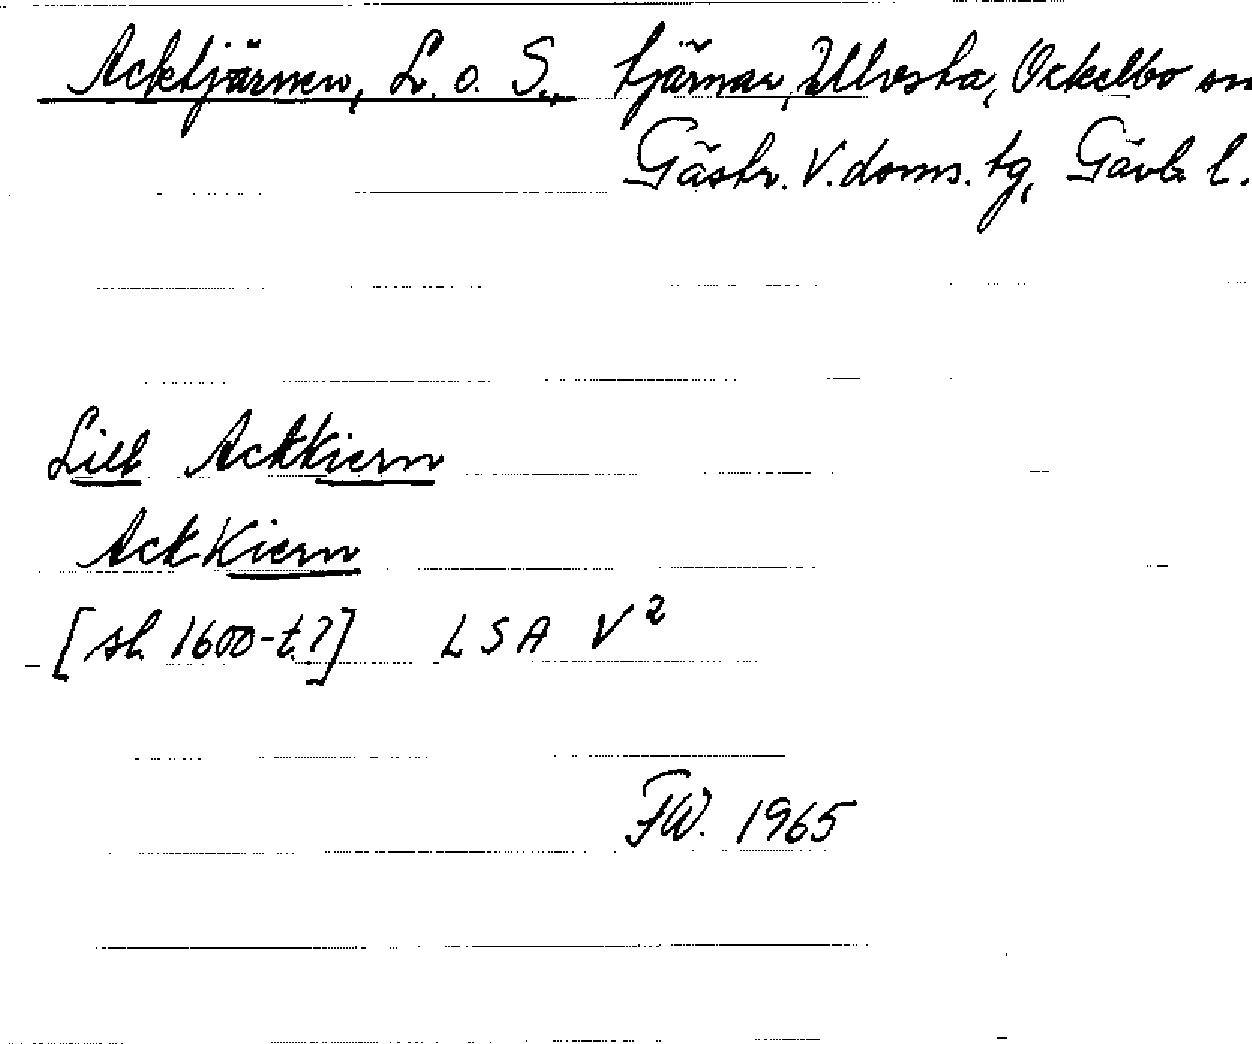 Acktjärnen, L. o. S., tjärnar, Ulvsta, Ockelbo sn
Gästr. V. doms. tg, Gävleb. l.
Lill Acktkiern
Ackt Kiern
[sl. 1600-t.?] LSA V²
FW. 1965